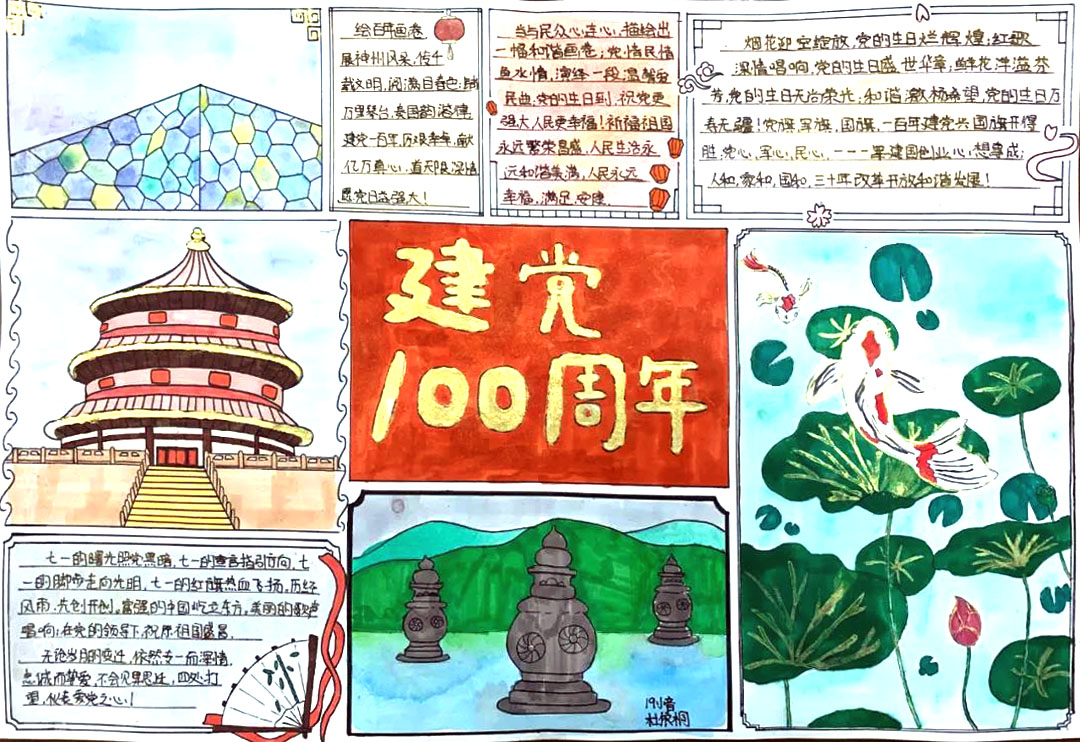 绘百年画卷
展神州风采,传千
载文明,阅满目春色;
万里琴台,奏国韵
建党一百年,历
亿万真心,道无限深情
愿党日益强大!
当与民众心连心,描绘出
一幅和谐画卷;党情民情
鱼水情,演绎一段温馨
民曲,党的生日到,祝党更
强大人民更幸福!祈福祖国
永远繁荣昌盛,人民生活永
远和谐美满,人民永远
幸福,满足,安康.
烟花迎空绽放,党的生日烂辉煌;红歌
深情唱响,党的生日盛世华章;鲜花洋溢芬
芳,党的生日无尚荣光;和谐激扬希望,党的生日万
寿无疆!党旗,军旗,国旗,一百年建党兴国旗开得
胜;党心,军心,民心,一一一果建国创业心,想事成;
人和,家和,国和,三十年改革开放和谐发展!
建党
100周年
七一的曙光照党黑暗,七一的宣言指引方向,七
一的脚步走向光明,七一的红旗热血飞扬,历经
风雨,共创开创,富强的中国屹立东方,美丽的歌声
唱响:在党的领导下,祝原祖国盛昌.
无论岁月的变迁,依然专一而深情,
忠诚而挚爱,不会见异思迁,四处打
望,仪表爱党之心!